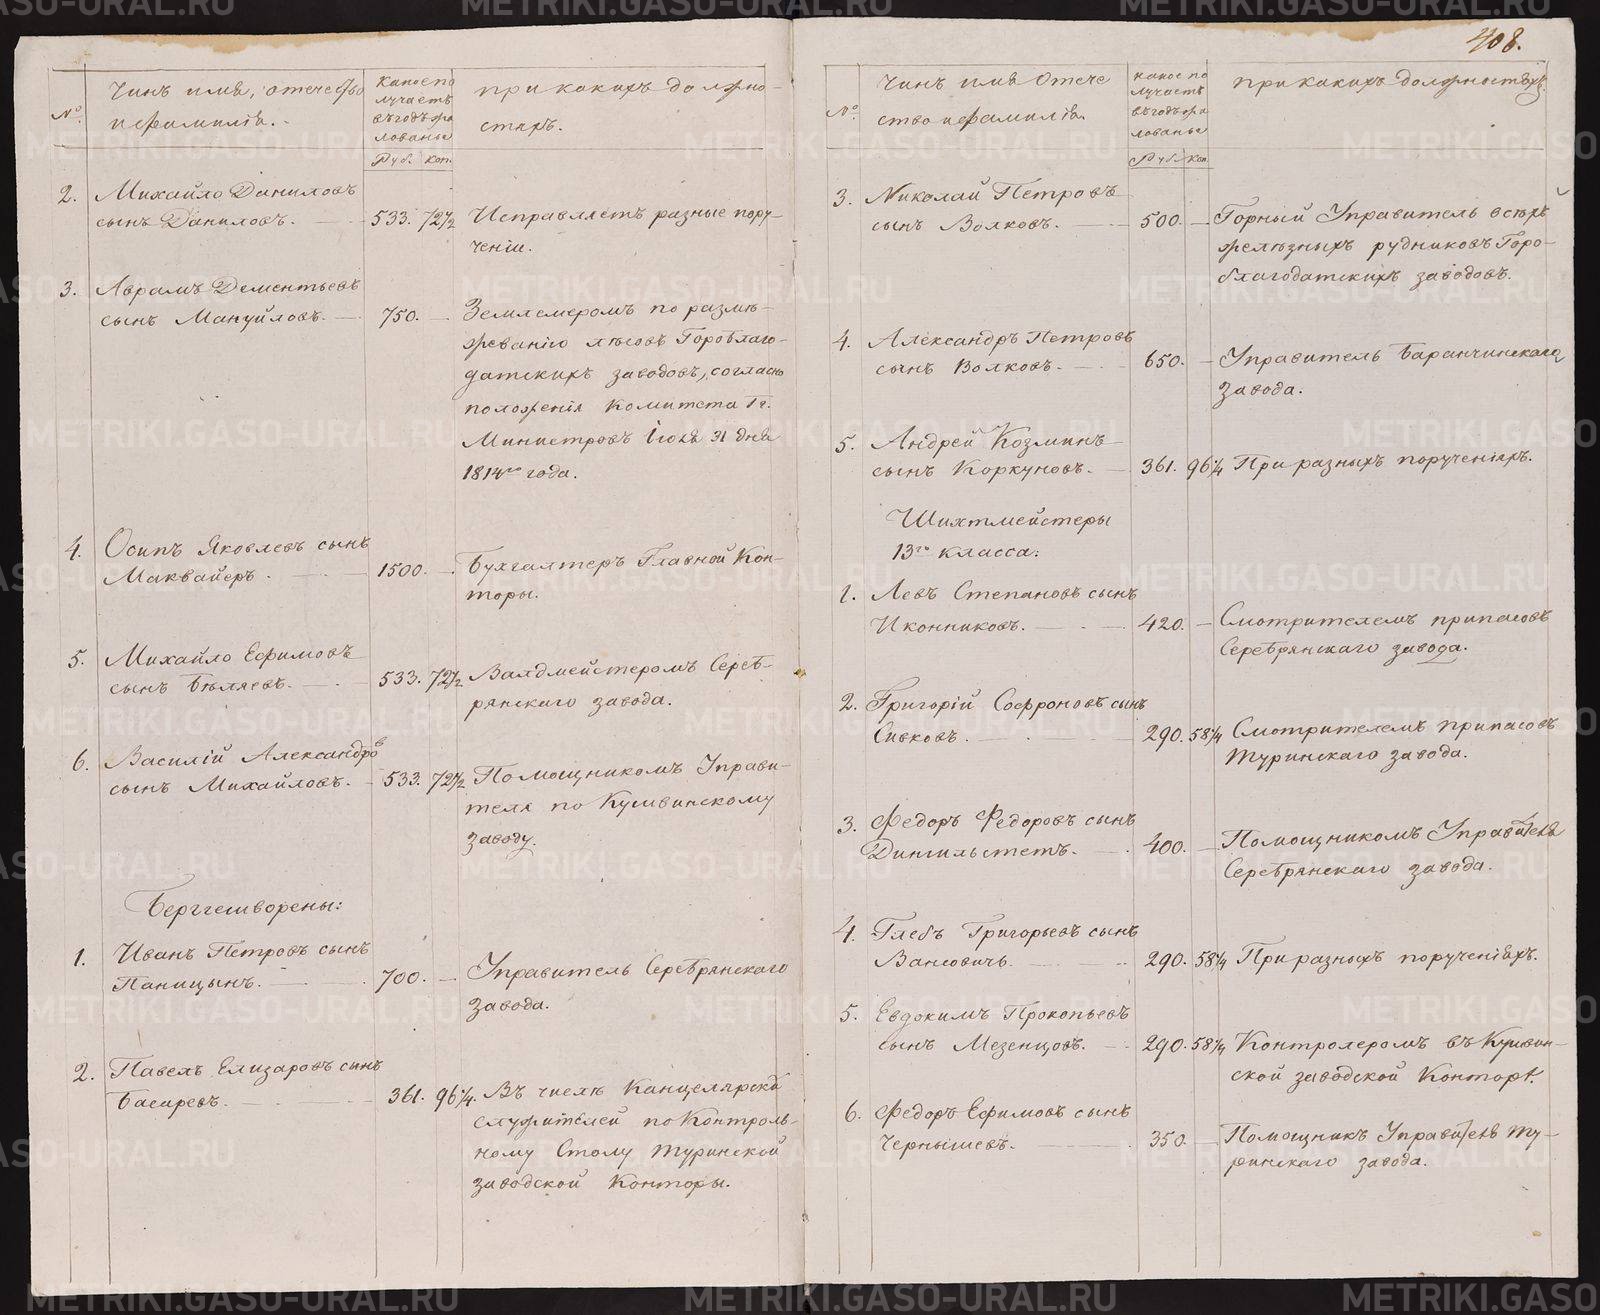 408.
№.
Чинъ имя, отечество
и фамилія.
Какое по
лучаетъ
въ годъ жа
лованье
Руб. Коп.
при какихъ должно-
стяхъ.
2. Михайло Даниловъ
сынъ Даниловъ. 533. 72 1/2 Исправляетъ разные пору-
ченіи.
3. Аврамъ Дементьевъ
сынъ Мануйловъ. 750. Землемеромъ по разме-
жеванію лесовъ Гороблаго-
датскихъ заводовъ, согласно
положенія Комитета Гг.
Министровъ Іюля 31 дня
1814го года.
4. Осипъ Яковлевъ сынъ
Маквайеръ. 1500. Бухгалтеръ Главной Кон-
торы.
5. Михайло Ефимовъ
сынъ Беляевъ. 533. 72 1/2 Валдмейстеромъ Сереб-
рянскаго завода.
6. Василій Александровъ
сынъ Михайловъ. 533. 72 1/2 Помощникомъ Управи-
теля по Кушвинскому
заводу.
Берггешворены:
1. Иванъ Петровъ сынъ
Паницынъ. 700. Управитель Серебрянскаго
завода.
2. Павелъ Елизаровъ сынъ
Басаревъ. 361. 96 1/4. Въ числѣ Канцелярской
служителей по Контроль-
ному Столу Туринской
заводской Конторы.
№.
Чинъ имя Отече
ство и фамилія.
какое по
лучаетъ
въ годъ жа
лованье
Руб. Коп.
при какихъ должностяхъ.
3. Николай Петровъ
сынъ Волковъ. 500. Горный Управитель всѣхъ
желѣзныхъ рудниковъ Горо-
благодатскихъ заводовъ.
4. Александръ Петровъ
сынъ Волковъ. 650. Управитель Баранчинскаго
завода.
5. Андрей Козминъ
сынъ Коркуновъ. 361. 96 1/4 При разныхъ порученіяхъ.
Шихтмейстеры
13го класса:
1. Левъ Степановъ сынъ
Иконниковъ. 420. Смотрителемъ припасовъ
Серебрянскаго завода.
2. Григорій Софроновъ сынъ
Сивковъ. 290. 58 1/4 Смотрителемъ припасовъ
Туринскаго завода.
3. Федоръ Федоровъ сынъ
Дингильстетъ. 400. Помощникомъ Управителя
Серебрянскаго завода.
4. Глебъ Григорьевъ сынъ
Вансовичъ. 290. 58 1/4 При разныхъ порученіяхъ.
5. Евдокимъ Прокопьевъ
сынъ Мезенцовъ. 290. 58 1/4 Контролеромъ въ Кушвин-
ской заводской Конторѣ.
6. Федоръ Ефимовъ сынъ
Чернышевъ. 350. Помощникъ Управителя Ту-
ринскаго завода.
METRIKI.GASO-URAL.RU